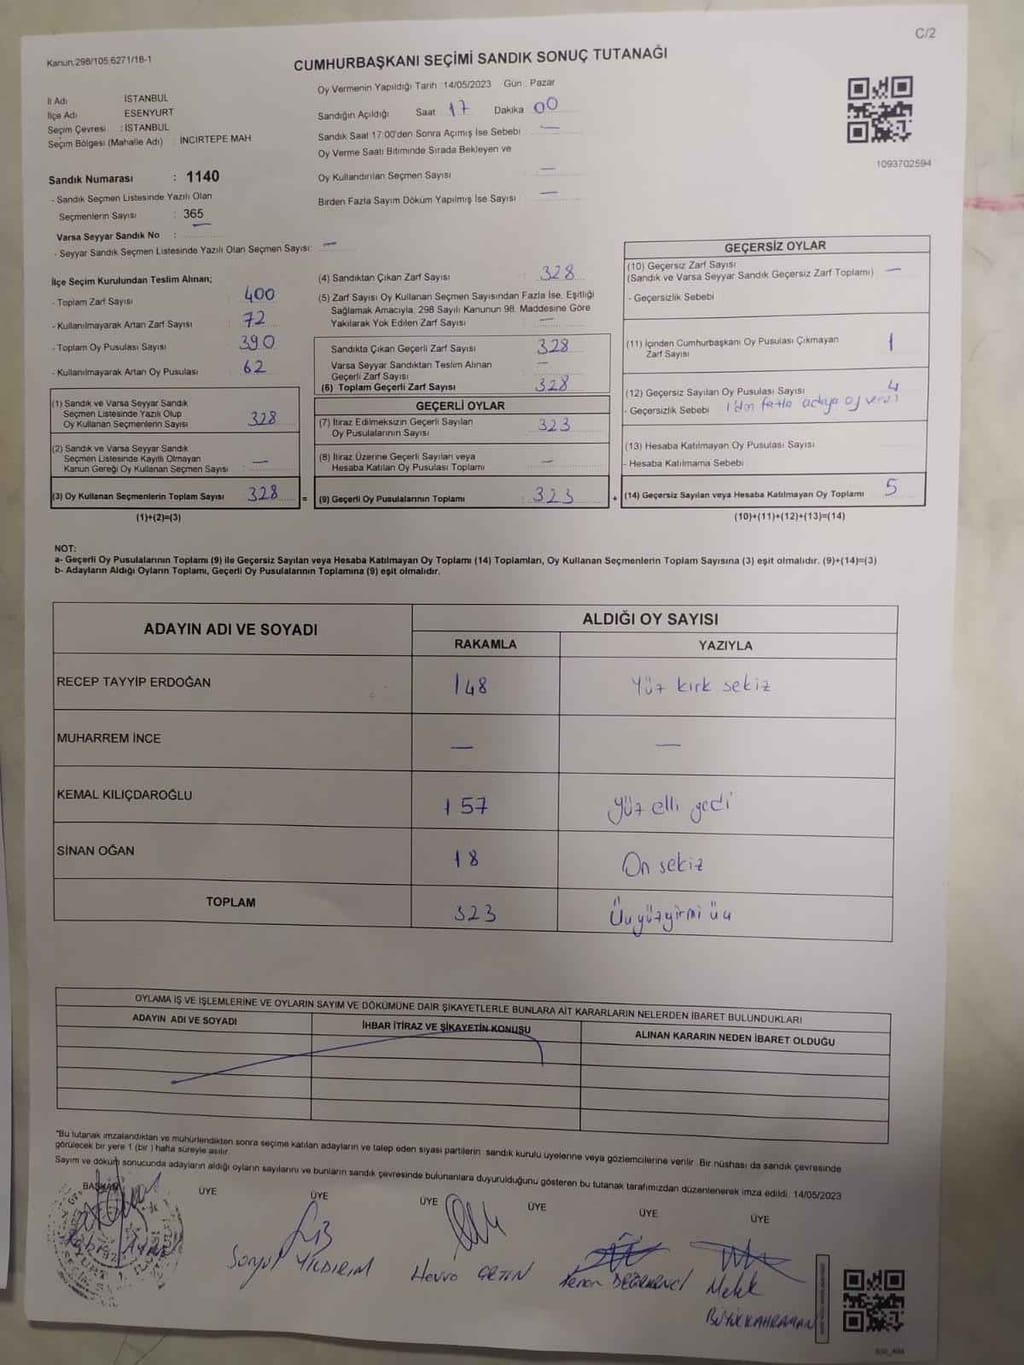 C/2
Kanun.298/105.6271/18-1
CUMHURBAŞKANI SEÇİMİ SANDIK SONUÇ TUTANAĞI
İl Adı İSTANBUL
İlçe Adı ESENYURT
Seçim Çevresi : İSTANBUL
Seçim Bölgesi (Mahalle Adı) : İNCİRTEPE MAH
Sandık Numarası : 1140
- Sandık Seçmen Listesinde Yazılı Olan
Seçmenlerin Sayısı : 365
Varsa Seyyar Sandık No :
- Seyyar Sandık Seçmen Listesinde Yazılı Olan Seçmen Sayısı: —
Oy Vermenin Yapıldığı Tarih :14/05/2023 Gün : Pazar
Sandığın Açıldığı Saat 17 Dakika 00
Sandık Saat 17:00'den Sonra Açımış İse Sebebi —
Oy Verme Saati Bitiminde Sırada Bekleyen ve
Oy Kullandırılan Seçmen Sayısı —
Birden Fazla Sayım Döküm Yapılmış İse Sayısı —
1093702594
İlçe Seçim Kurulundan Teslim Alınan;
- Toplam Zarf Sayısı 400
- Kullanılmayarak Artan Zarf Sayısı 72
- Toplam Oy Pusulası Sayısı 390
- Kullanılmayarak Artan Oy Pusulası 62
(1) Sandık ve Varsa Seyyar Sandık
Seçmen Listesinde Yazılı Olup
Oy Kullanan Seçmenlerin Sayısı 328
(2) Sandık ve Varsa Seyyar Sandık
Seçmen Listesinde Kayıtlı Olmayan
Kanun Gereği Oy Kullanan Seçmen Sayısı —
(3) Oy Kullanan Seçmenlerin Toplam Sayısı 328 =
(1)+(2)=(3)
(4) Sandıktan Çıkan Zarf Sayısı : 328
(5) Zarf Sayısı Oy Kullanan Seçmen Sayısından Fazla İse, Eşitliği
Sağlamak Amacıyla, 298 Sayılı Kanunun 98. Maddesine Göre
Yakılarak Yok Edilen Zarf Sayısı : —
Sandıkta Çıkan Geçerli Zarf Sayısı 328
Varsa Seyyar Sandıktan Teslim Alınan
Geçerli Zarf Sayısı —
(6) Toplam Geçerli Zarf Sayısı 328
GEÇERLİ OYLAR
(7) İtiraz Edilmeksizin Geçerli Sayılan
Oy Pusulalarının Sayısı 323
(8) İtiraz Üzerine Geçerli Sayılan veya
Hesaba Katılan Oy Pusulası Toplamı —
(9) Geçerli Oy Pusulalarının Toplamı 323 +
GEÇERSİZ OYLAR
(10) Geçersiz Zarf Sayısı
(Sandık ve Varsa Seyyar Sandık Geçersiz Zarf Toplamı) —
- Geçersizlik Sebebi
(11) İçinden Cumhurbaşkanı Oy Pusulası Çıkmayan
Zarf Sayısı 1
(12) Geçersiz Sayılan Oy Pusulası Sayısı 4
- Geçersizlik Sebebi 1'den fazla adaya oy verdi
(13) Hesaba Katılmayan Oy Pusulası Sayısı
- Hesaba Katılmama Sebebi
(14) Geçersiz Sayılan veya Hesaba Katılmayan Oy Toplamı 5
(10)+(11)+(12)+(13)=(14)
NOT:
a- Geçerli Oy Pusulalarının Toplamı (9) ile Geçersiz Sayılan veya Hesaba Katılmayan Oy Toplamı (14) Toplamları, Oy Kullanan Seçmenlerin Toplam Sayısına (3) eşit olmalıdır. (9)+(14)=(3)
b- Adayların Aldığı Oyların Toplamı, Geçerli Oy Pusulalarının Toplamına (9) eşit olmalıdır.
ADAYIN ADI VE SOYADI ALDIĞI OY SAYISI
RAKAMLA YAZIYLA
RECEP TAYYİP ERDOĞAN 148 Yüz kırk sekiz
MUHARREM İNCE — —
KEMAL KILIÇDAROĞLU 157 Yüz elli yedi
SİNAN OĞAN 18 On sekiz
TOPLAM 323 Üçyüzyirmi üç
OYLAMA İŞ VE İŞLEMLERİNE VE OYLARIN SAYIM VE DÖKÜMÜNE DAİR ŞİKAYETLERLE BUNLARA AİT KARARLARIN NELERDEN İBARET BULUNDUKLARI
ADAYIN ADI VE SOYADI İHBAR İTİRAZ VE ŞİKAYETİN KONUSU ALINAN KARARIN NEDEN İBARET OLDUĞU
*Bu tutanak imzalandıktan ve mühürlendikten sonra seçime katılan adayların ve talep eden siyasi partilerin sandık kurulu üyelerine veya gözlemcilerine verilir. Bir nüshası da sandık çevresinde
görülecek bir yere 1 (bir) hafta süreyle asılır.
Sayım ve döküm sonucunda adayların aldığı oyların sayılarını ve bunların sandık çevresinde bulunanlara duyurulduğunu gösteren bu tutanak tarafımızdan düzenlenerek imza edildi. 14/05/2023
BAŞKAN ÜYE ÜYE ÜYE ÜYE ÜYE ÜYE
Songül YILDIRIM
Kenan DEĞİRMENCİ
Melek
BÜYÜKKAHRAMAN